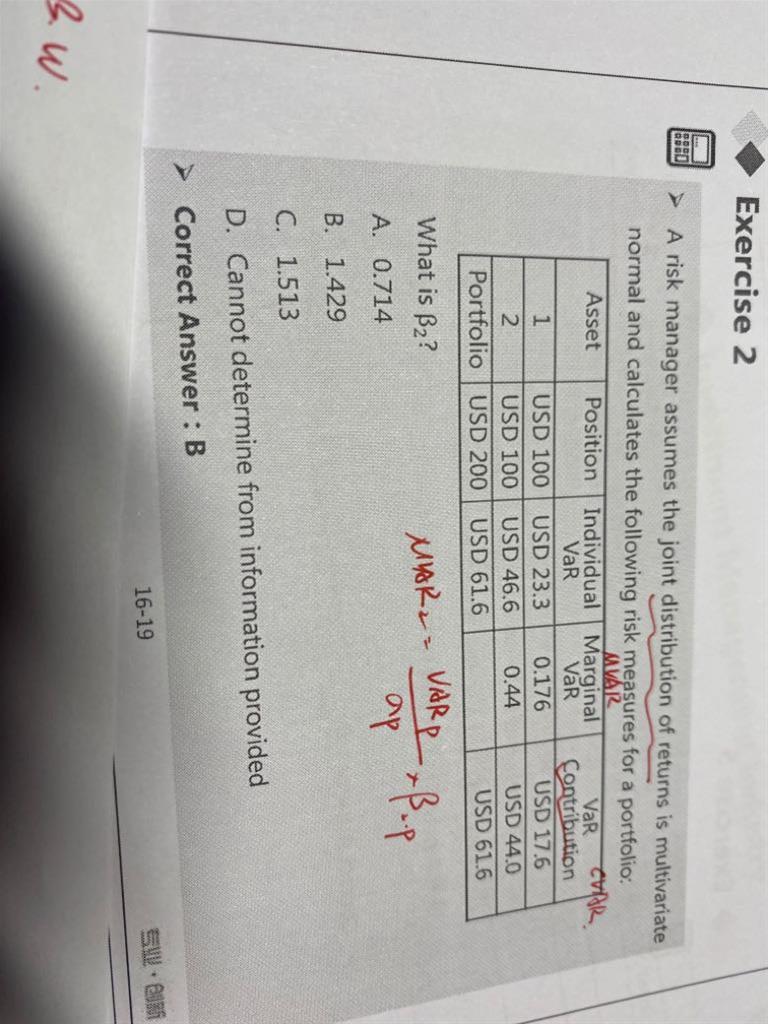 Exercise 2
➢ A risk manager assumes the joint distribution of returns is multivariate
normal and calculates the following risk measures for a portfolio:
MVAR
CVAR.
Asset Position Individual VaR Marginal VaR VaR Contribution
1 USD 100 USD 23.3 0.176 USD 17.6
2 USD 100 USD 46.6 0.44 USD 44.0
Portfolio USD 200 USD 61.6 USD 61.6
What is β₂?
MVAR₂ = VARp / ap × β₂.p
A. 0.714
B. 1.429
C. 1.513
D. Cannot determine from information provided
➢ Correct Answer : B
16-19
W.